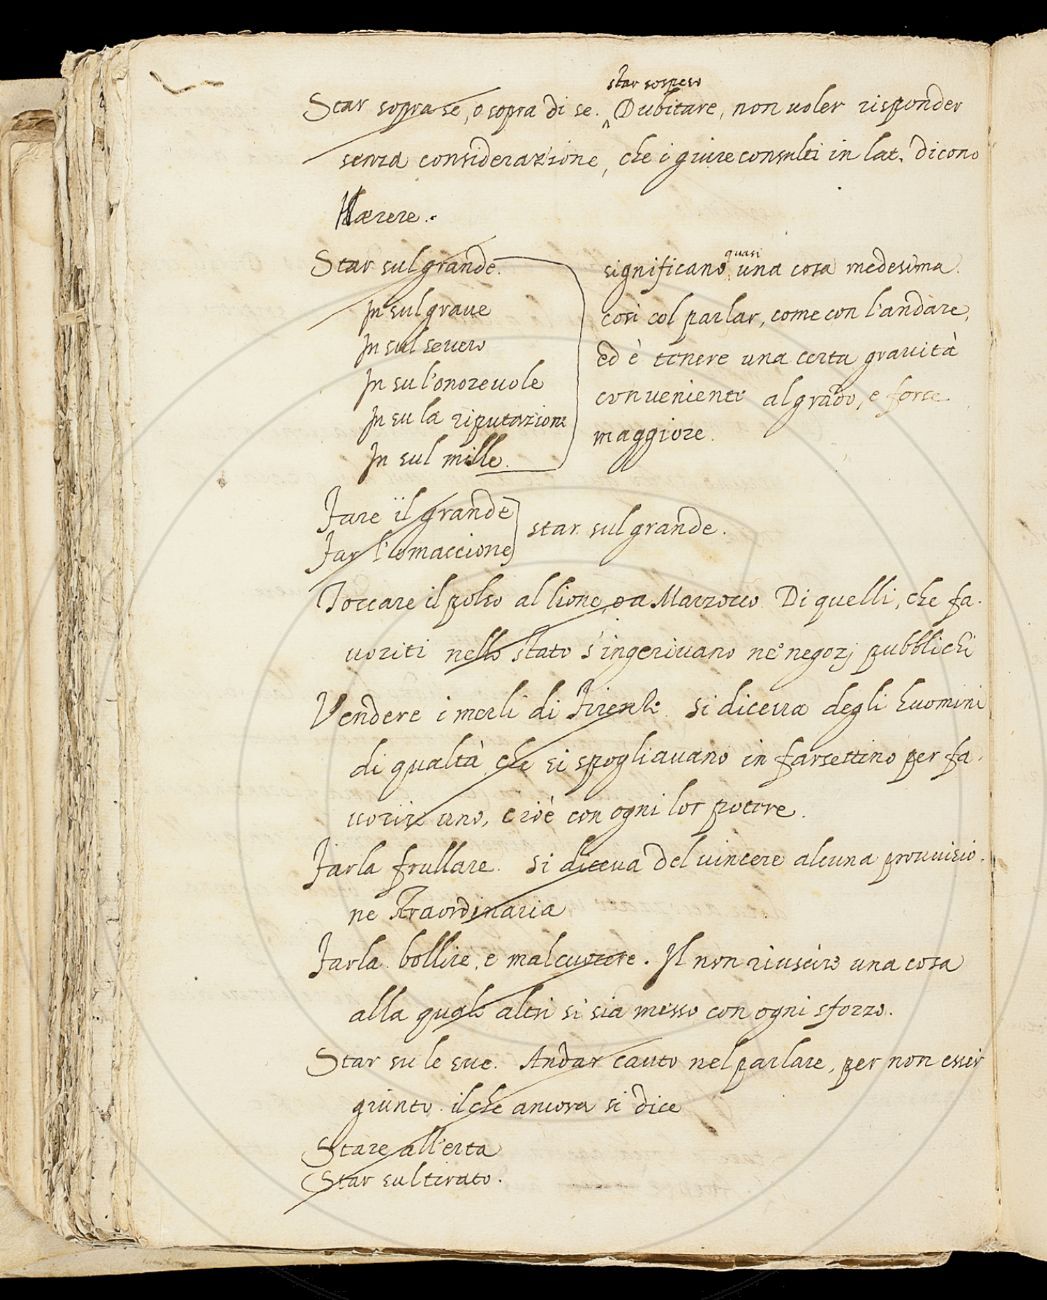 star sospeso
Star sopra se, o sopra di se. Dubitare, non uoler risponder
senza considerazione, che i giureconsulti in lat. dicono
Hærere.
Star sul grande.
In sul graue
In sul seuero
In su l'onoreuole
In su la riputazione
In sul mille.
quasi
significano una cosa medesima.
cosi col parlar, come con l'andare,
ed è tenere una certa grauità
conueniente al grado, e forse
maggiore.
Fare il grande
Far l'omaccione
star sul grande.
Toccare il polso al lione, o a Marzocco Di quelli, che fa-
uoriti nello stato s'ingeriuano ne' negozj pubblichi
Vendere i merli di Firenze. si diceua degli huomini
di qualtà che si spogliauano in farsettino per fa-
uorire uno, cioè con ogni lor potere.
Farla frullare. Si diceua del uincere alcuna prouuisio-
ne straordinaria
Farla bollire, e malcuocere. Il non riuscire una cosa
alla quale altri si sia messo con ogni sforzo.
Star su le sue. Andar cauto nel parlare, per non esser
giunto. il che ancora si dice
Stare all'erta
Star sul tirato.